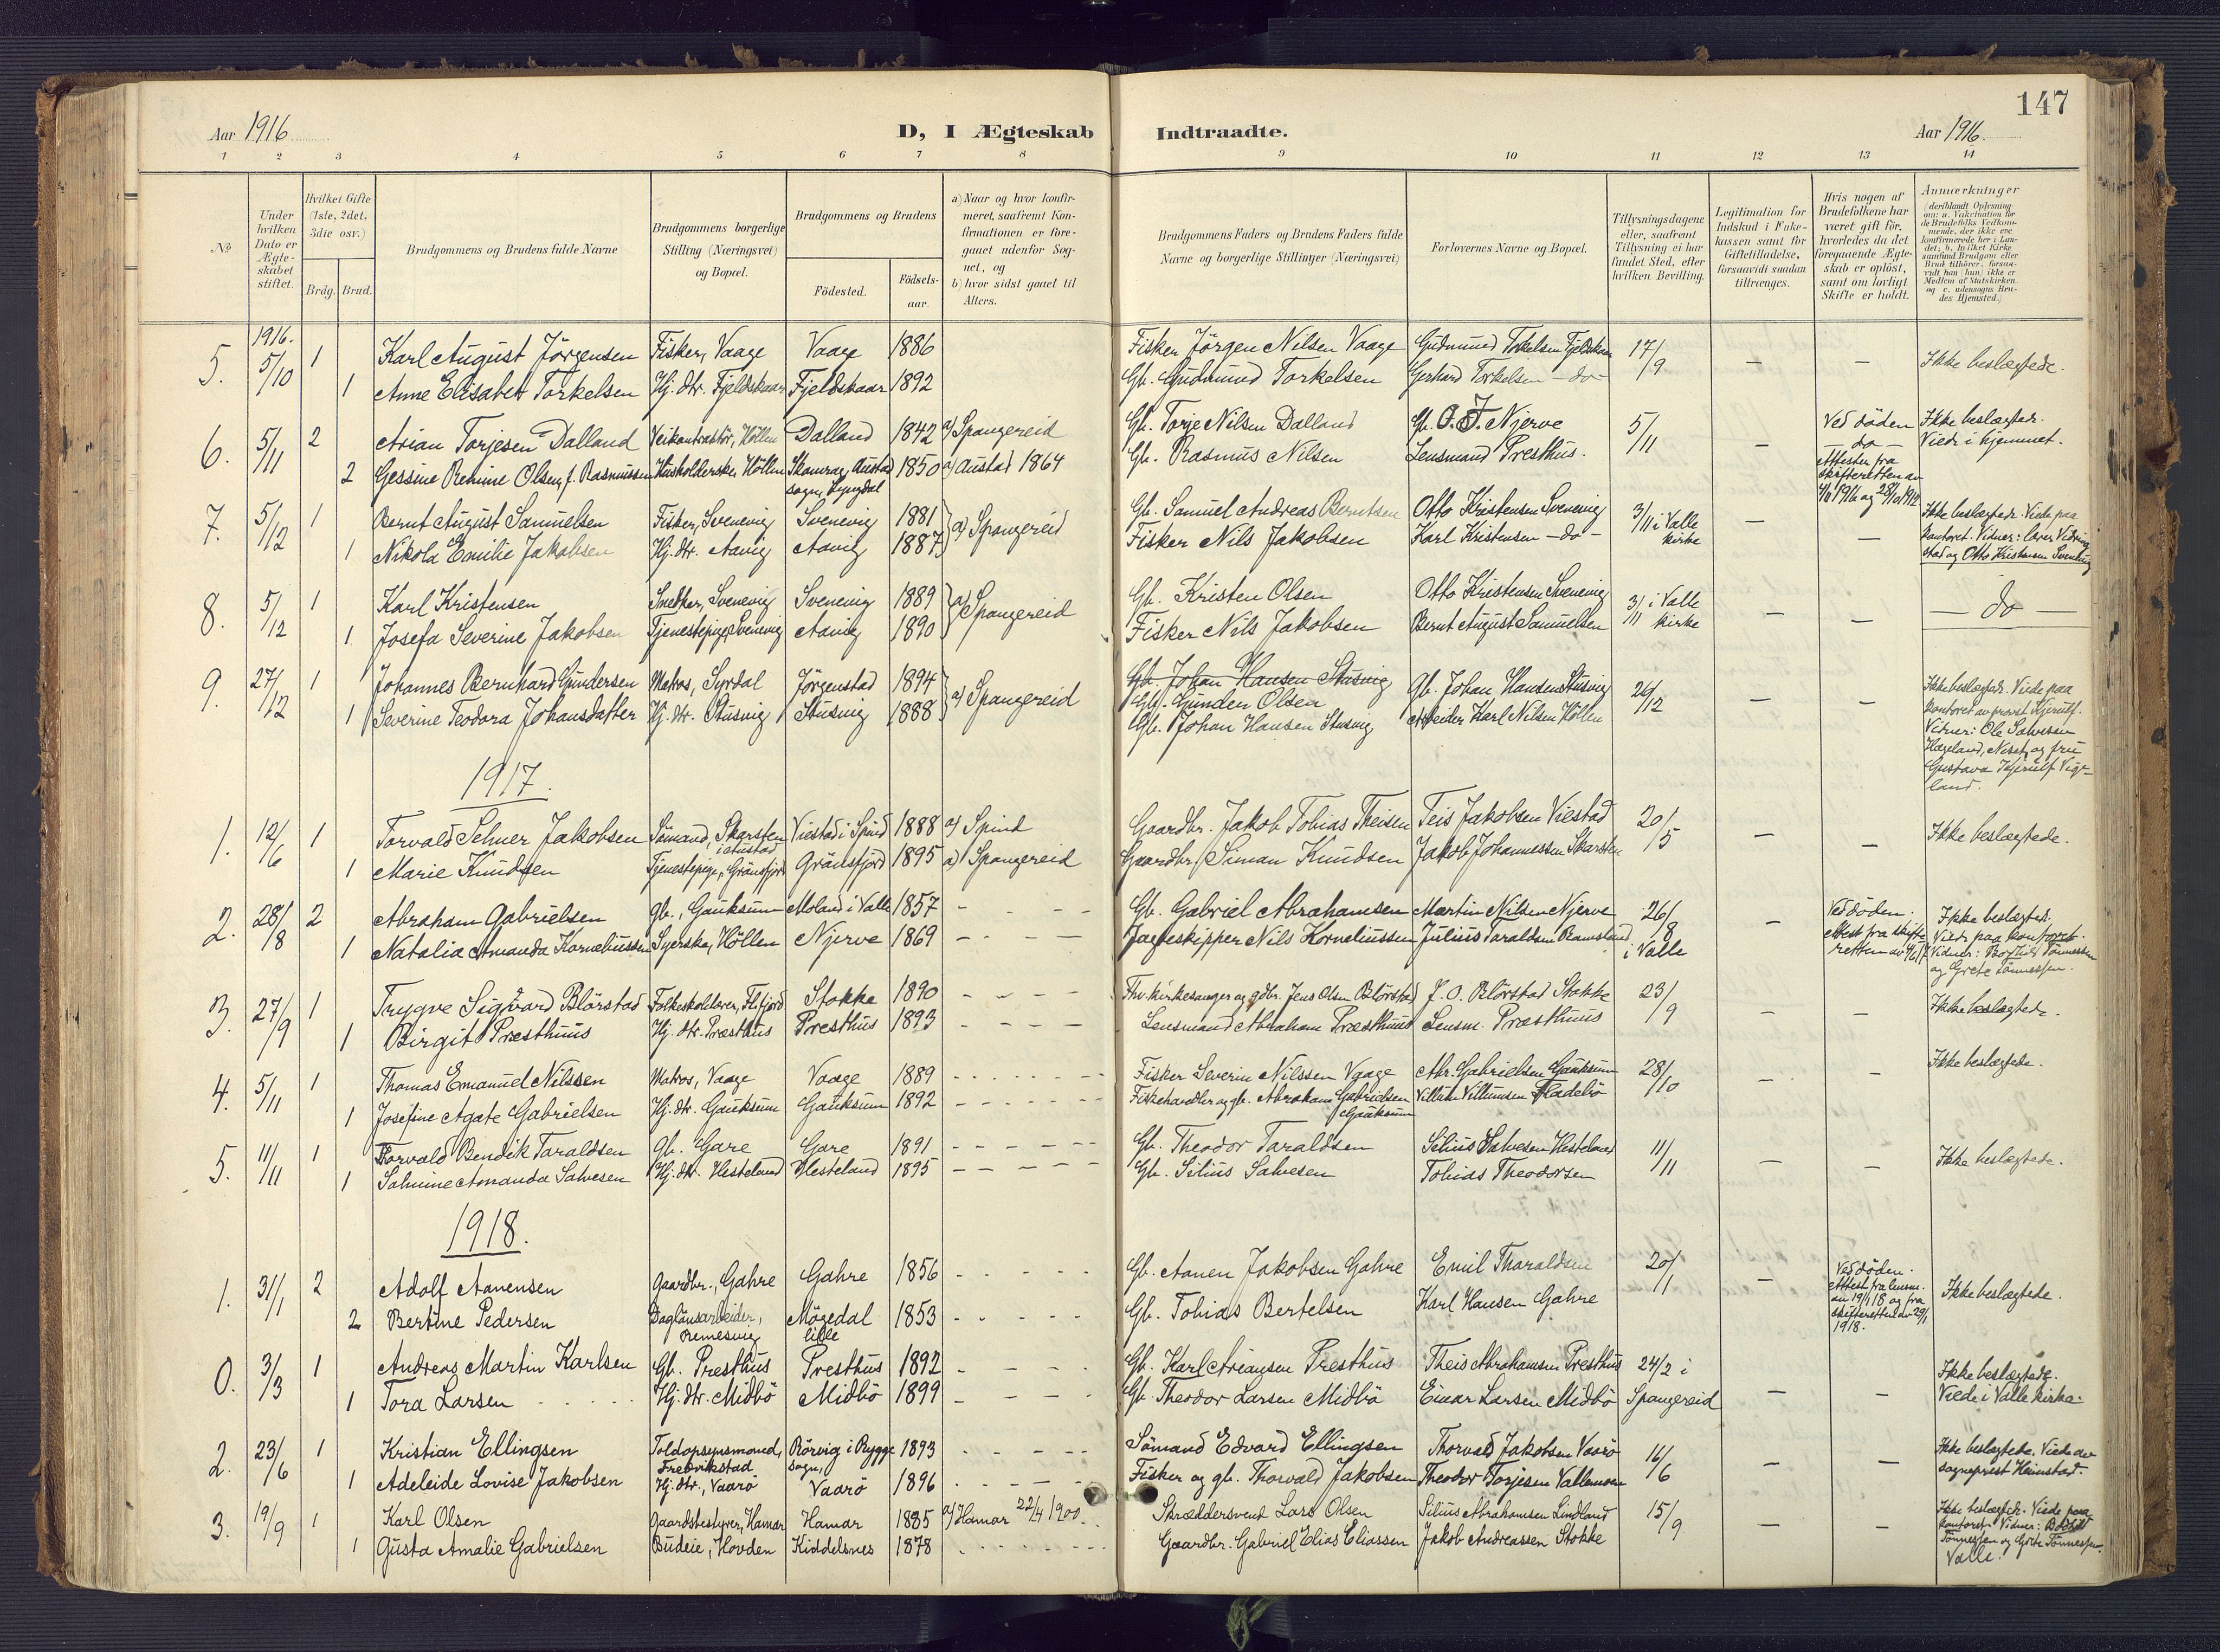 147
Aar 1916
D, I Ægteskab Indtraadte.
Aar 1916.
1 2 3 4 5 6 7 8 9 10 11 12 13 14
No
Under hvilken Dato er Ægteskabet stiftet.
Hvilket Gifte (1ste, 2det, 3die osv.)
Brdg. Brud.
Brudgommens og Brudens fulde Navne
Brudgommens borgerlige Stilling (Næringsvei) og Bopæl.
Brudgommens og Brudens
Födested.
Födsels-aar.
a) Naar og hvor konfirmeret, saafremt Konfirmationen er foregaaet udenfor Sognet, og
b) hvor sidst gaaet til Alters.
Brudgommens Faders og Brudens Faders fulde Navne og borgerlige Stillinger (Næringsvei)
Forlovernes Navne og Bopæl.
Tillysningsdagene eller, saafremt Tillysning ei har fundet Sted, efter hvilken Bevilling.
Legitimation for Indskud i Enkekassen samt for Giftetilladelse, forsaavidt saadan tiltrænges.
Hvis nogen af Brudefolkene har været gift før, hvorledes da det foregaaende Ægteskab er oplöst, samt om lovligt Skifte er holdt.
Anmærkninger (deriblandt Oplysning om: a. Vakcination for de Brudefolks Vedkommende, der ikke ere konfirmerede her i Landet; b. hvilket Kirkesamfund Brudgom eller Brud tilhörer, forsaavidt han (hun) ikke er Medlem af Statskirken, og c. udensogns Brudes Hjemsted.)
1916.
5. 5/10 1 Karl August Jörgensen Fisker, Vaage Vaage 1886 Fisker Jörgen Nilsen Vaage Gudmund Torkelsen Fjeldskaar 17/9 — — Ikke beslægtede.
1 Anne Elisabet Torkelsen Hj. dtr. Fjeldskaar Fjeldskaar 1892 Gb. Gudmund Torkelsen Gerhard Torkelsen -do-
6. 5/11 2 Arian Torjesen Dalland Veikontraktör, Höllen Dalland 1842 a) Spangereid Gb. Torje Nilsen Dalland Gb. O. T. Njerve 5/11 — Ved döden Ikke beslægtede.
2 GessineRemine Olsen, f. Rasmussen Husholderske, Höllen Skomrag, Austad sogn, Lyngdal 1850 a) Austad 1864 Gb. Rasmus Nilsen Lensmand Presthus. — do — Viede i hjemmet.
Attester fra skifteretten av 4/11 1916 og 28/10 1912
7. 5/12 1 Bernt August Samuelsen Fisker, Svenevig Svenevig 1881 a) Spangereid Gb. Samuel Andreas Berntsen Otto Kristensen Svenevig 3/11 i Valle kirke — — Ikke beslægtede. Viede paa
1 Nikola Emilie Jakobsen Hj. dtr. Aavig Aavig 1887 Fisker Nils Jakobsen Karl Kristensen -do- kontoret. Vidner: lærer Vidringstad og Otto Kristensen Svenevig
8. 5/12 1 Karl Kristensen Snedker, Svenevig Svenevig 1889 a) Spangereid Gb. Kristen Olsen Otto Kristensen Svenevig 3/11 i Valle kirke — — — do —
1. Josefa Severine Jakobsen Tjenestepige, Svenevig Aavig 1890 Fisker Nils Jakobsen Bernt August Samuelsen
9. 27/12 1 Johannes Bernhard Gundersen Matros, Syrdal Jörgenstad 1894 a) Spangereid Gb. Johan Hansen Stusvig Gb. Johan Hansen Stusvig 26/12 — — Ikke beslægtede. Viede paa
Gbr. Gunden Olsen
1 Severine Teodora Johansdatter Hj. dtr. Stusvig Stusvig 1888 Gb. Johan Hansen Stusvig Arbeider Karl Nilsen Höllen kontoret av provst Kjerulf.
Vidner: Ole Salvesen Hageland, og fru Gustava Kjerulf Vigeland.
1917.
1. 12/6 1 Torvald Selmer Jakobsen Sömand, Skarsten i Austad Viestad i Spind 1888 a) Spind Gaardbr. Jakob Tobias Theisen Teis Jakobsen Viestad 20/5 — — Ikke beslægtede.
1 Marie Knudsen Tjenestepige, Grönsfjord Grönsfjord 1895 a) Spangereid Gaardbr. Simon Knudsen Jakob Johannessen Skarsten
2. 28/8 2 Abraham Gabrielsen gb., Gauksum Moland i Valle 1857 Gb. Gabriel Abrahamsen Martin Nilsen Njerve 26/8 i Valle — Ved döden. Ikke beslægtede.
1 Natalia Amanda Korneliussen Syerske, Höllen Njerve 1869 Jagteskipper Nils Korneliussen Julius Taraldsen Ramsland Attest fra skifteretten av Viede paa kontoret. Vidner: Borghild Tönnessen og Grete Tönnessen.
3. 27/9 1 Trygve Sigvard Blörstad Folkeskolelærer, Flikfjord Stokke 1890 Fhv. kirkesanger og gdbr. Jens Olsen Blörstad J. O. Blörstad Stokke 23/9 — — Ikke beslægtede.
1 Birgit Præsthuus Hj. dtr. Præsthus Presthus 1893 Lensmand Abraham Præsthuus Lensm. Præsthuus
4. 5/11 1 Thomas Emanuel Nilssen Matros, Vaage Vaage 1889 Fisker Severin Nilssen Vaage Abr. Gabrielsen Gauksum 28/10 — — Ikke beslægtede.
1 Josefine Agate Gabrielsen Hj. dtr. Gauksum Gauksum 1892 Fiskehandler og gb. Abraham Gabrielsen Gauksum Villum Villumsen Fladebö
5. 11/11 1 Torvald Bendik Taraldsen gb. Gare Gare 1891 Gb. Theodor Taraldsen Silius Salvesen Hesteland 11/11 — — Ikke beslægtede.
1 Salmine Amanda Salvesen Hj. dtr. Hesteland Hesteland 1895 Gb. Silius Salvesen Tobias Theodorsen
1918.
1. 31/1 2 Adolf Aanensen Gaardbr., Gahre Gahre 1856 Gb. Aanen Jakobsen Gahre Emil Tharaldsen 20/1 — Ved döden. Ikke beslægtede.
2 Bertine Pedersen Daglönsarbeider, Remesvig Mögedal lille 1853 Gb. Tobias Bertelsen Karl Hansen Gahre Attest fra lensm. av 19/1 18 og fra skifteretten av 29/1 1918.
0. 3/3 1 Andreas Martin Karlsen Gb. Presthus Presthus 1892 Gb. Karl Ariansen Presthus Theis Abrahamsen Presthus 24/2 i Spangereid — — Ikke beslægtede.
1 Tora Larsen Hj. dtr. Midbö Midbö 1899 Gb. Theodor Larsen Midbö Einar Larsen Midbö Viede i Valle kirke.
2. 23/6 1 Kristian Ellingsen Toldopsynsmand, Fredrikstad Rörvig i Rygge sogn, 1893 Sömand Edvard Ellingsen Thorvald Jakobsen Vaarö 16/6 — — Ikke beslægtede. Viede av
1 Adeleide Lovise Jakobsen Hj. dtr., Vaarö Vaarö 1896 Fisker og gb. Thorvald Jakobsen Theodor Torjesen Vallemoen sogneprest Heimstad.
3. 19/9 1 Karl Olsen Gaardsbestyrer, Hamar Hamar 1885 a) Hamar 22/4 1900. Skræddersvend Lars Olsen Silius Abrahamsen Lindland 15/9 — — Ikke beslægtede. Viede paa
1 Gusta Amalie Gabrielsen Budeie, Hovden Kiddelsnes 1878 Gaardbr. Gabriel Elias Eliassen Jakob Andreassen Stokke kontoret. Vidner: Tönnessen og Grete Tönnessen Valle.